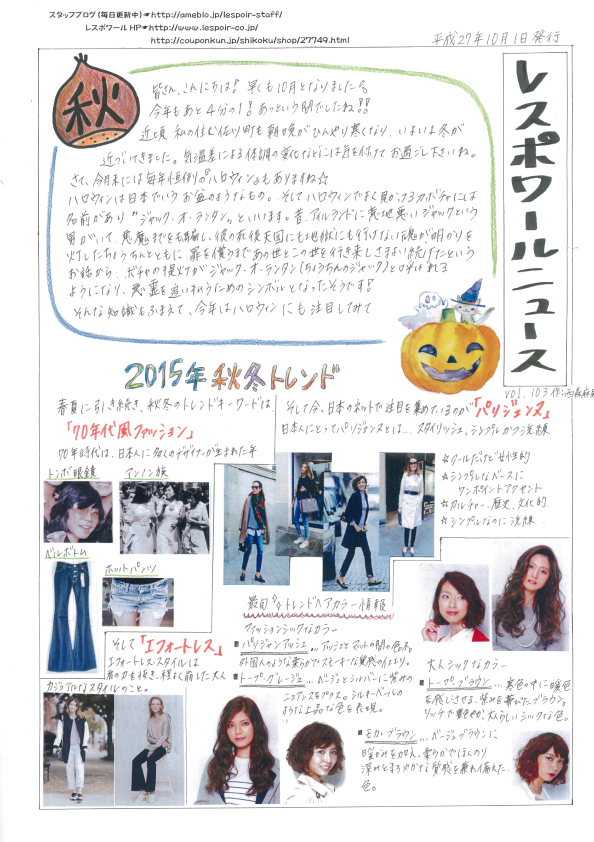 スタッフブログ(毎日更新中)☛http://ameblo.jp/lespoir-staff/
レスポワールHP☛http://www.lespoir-co.jp/
http://couponkun.jp/shikoku/shop/27749.html
平成27年10月1日発行
レスポワールニュース
vol.103
秋
皆さん、こんにちは!早くも10月となりました
今年もあと4分の1!あっという間でしたね!!
近頃 私の住む佐川町も朝晩がひんやり寒くなり、いよいよ冬が
近づいてきました。気温差による体調の変化などには気を付けてお過ごし下さいね。
さて、今月末には毎年恒例の『ハロウィン』もありますね☆
ハロウィンは日本でいうお盆のようなもの。そしてハロウィンでよく見かけるカボチャには
名前があり"ジャック・オ・ランタン"といいます。昔、アイルランドに意地悪いジャックという
男がいて、悪魔までをも騙し、彼の死後天国にも地獄にも行けない魂が明かりを
灯したちょうちんとともに 罪を償うまであの世とこの世を行き来しさまよい続けたという
お話から、ボチャの提灯がジャック・オ・ランタン(ちょうちんのジャック)と呼ばれる
ようになり、悪霊を追い払うためのシンボルとなったそうです!
そんな知識もふまえて、今年はハロウィンにも注目してみて
2015年 秋冬トレンド
春夏に引き続き、秋冬のトレンドキーワードは、
「70年代風ファッション」
70年時代は、日本人に多くのデザイナーが生まれた年
トンボ眼鏡
アンノン族
ベルボトム
ホットパンツ
そして「エフォートレス」
エフォートレススタイルは
肩の力を抜き、程よく崩した大人
カジュアルなスタイルのこと。
そして今、日本のネットで注目を集めているのが「パリジェンヌ」
日本人にとってパリジェンヌとは…スタイリッシュ、シンプルかつ洗練
☆クールだけど女性的
☆シンプルなベースに
ワンポイントアクセント
☆カルチャー、歴史、文化的
☆シンプルなのに洗練
最旬トレンドヘアカラー情報
ファッションシックなカラー
■パリジャンアッシュ…アッシュとマットの間の色味。
外国人のような柔らかでスモーキーな質感のイメージ。
■トープグレージュ…ベージュとシルバーに紫みの
ニュアンスをプラス。シルキーパールの
ような上品な色を表現。
大人シックなカラー
■トープブラウン…寒色の中に暖色
を感じさせる、紫みを帯びたブラウン。
リッチで艶やか、大人らしいシックな色。
■モカブラウン…ベージュブラウンに
暖かみを加え、柔らかでほんのり
深みとまろやかな質感を兼ね備えた
色。